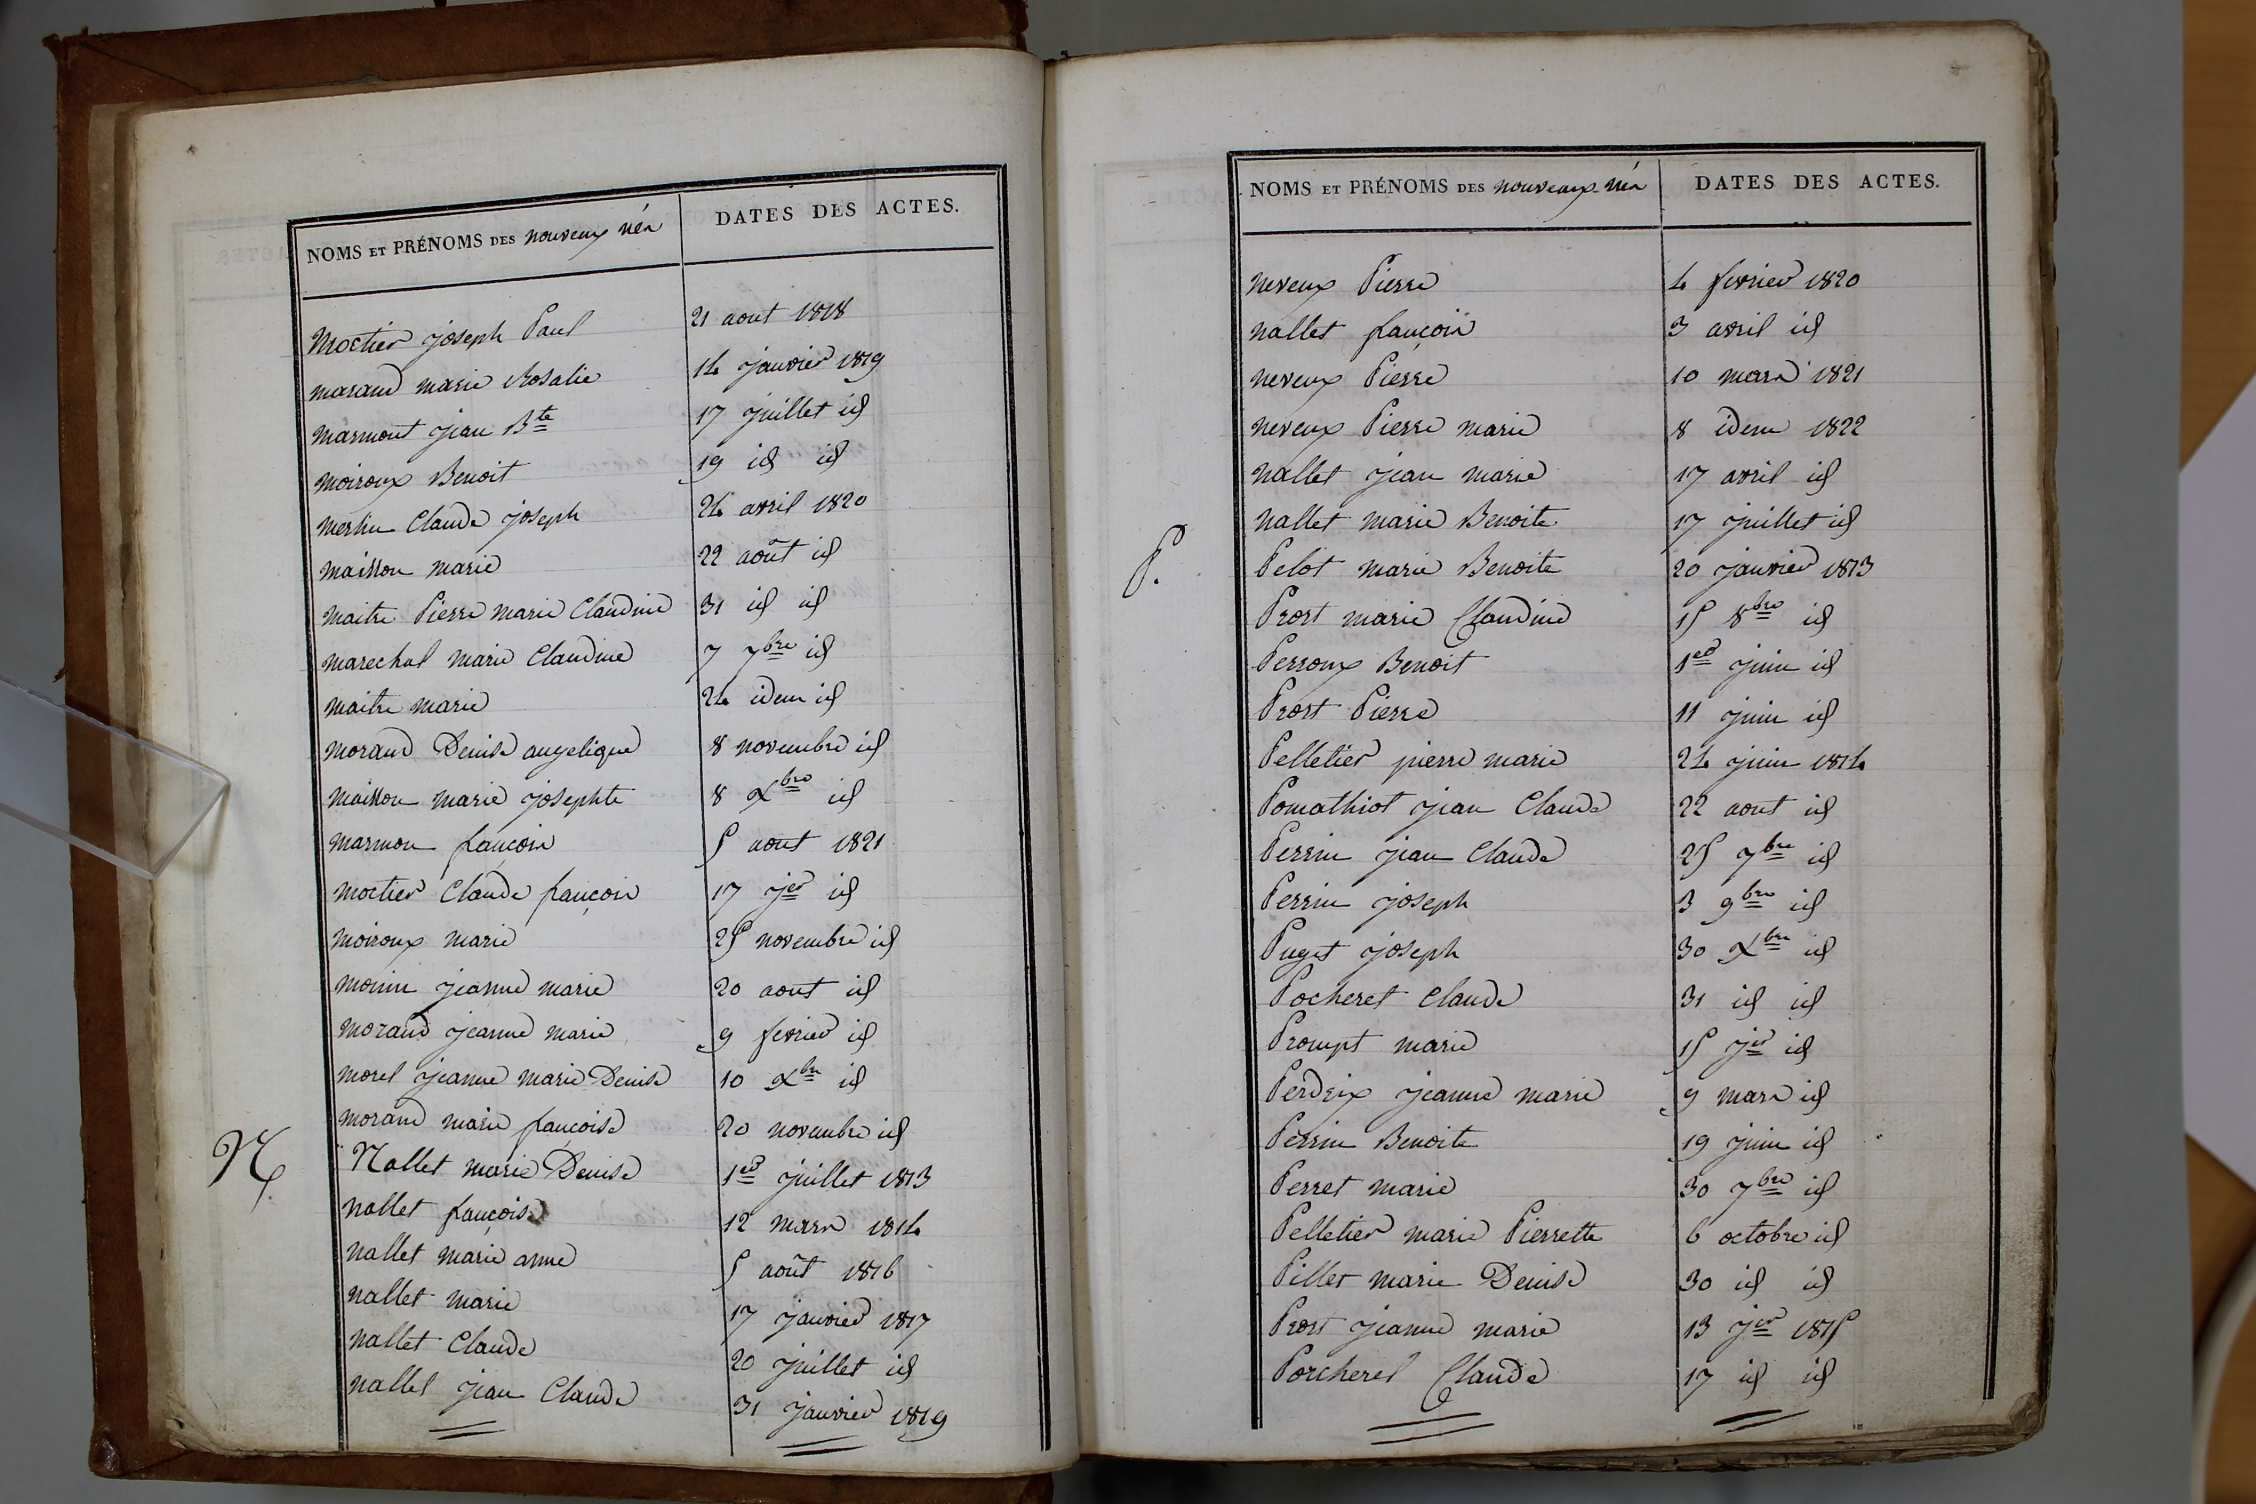 NOMS ET PRÉNOMS DES nouveux nés DATES DES ACTES.
Moctier joseph Paul 21 aout 1818
Morand marie Rosalie 14 janvier 1819
Marmont jean Bte 17 juillet id
Moiroux Benoit 19 id id
Merlin Claude joseph 24 avril 1820
Maisson marie 22 août id
Maitre Pierre marie Claudine 31 id id
Marechal marie Claudine 7 7bre id
Maitre marie 24 idem id
Morand Denise angelique 8 novembre id
Maisson marie josephte 8 Xbre id
Marmon françois 5 aout 1821
Moctier Claude françois 17 jer id
Moiroux marie 25 novembre id
Monin jeanne marie 20 aout id
Morand jeanne marie 9 fevrier id
Morel jeanne marie Denise 10 Xbre id
Morand marie françoise 20 novembre id
N. Nallet marie Denise 1er juillet 1813
Nallet françoise 12 mars 1814
Nallet marie anne 5 août 1816
Nallet marie 17 janvier 1817
Nallet Claude 20 juillet id
Nallet jean Claude 31 janvier 1819
NOMS ET PRÉNOMS DES nouveaux nés DATES DES ACTES.
Neveux Pierre 4 fevrier 1820
Nallet françois 3 avril id
Neveux Pierre 10 mars 1821
Neveux Pierre marie 8 idem 1822
Nallet jean marie 17 avril id
Nallet marie Benoite 17 juillet id
P. Pelot marie Benoite 20 janvier 1813
Prost marie Claudine 15 8bre id
Perroux Benoit 1er juin id
Prost Pierre 11 juin id
Pelletier pierre marie 24 juin 1814
Pomathiot jean Claude 22 aout id
Perrin jean Claude 25 7bre id
Perrin joseph 3 9bre id
Puget joseph 30 Xbre id
Pocheret Claude 31 id id
Prompt marie 15 jer id
Perdrix jeanne marie 9 mars id
Perrin Benoite 19 juin id
Perret marie 30 7bre id
Pelletier marie Pierrette 6 octobre id
Pillet marie Denise 30 id id
Prost jeanne marie 13 jer 1815
Porcherel Claude 17 id id